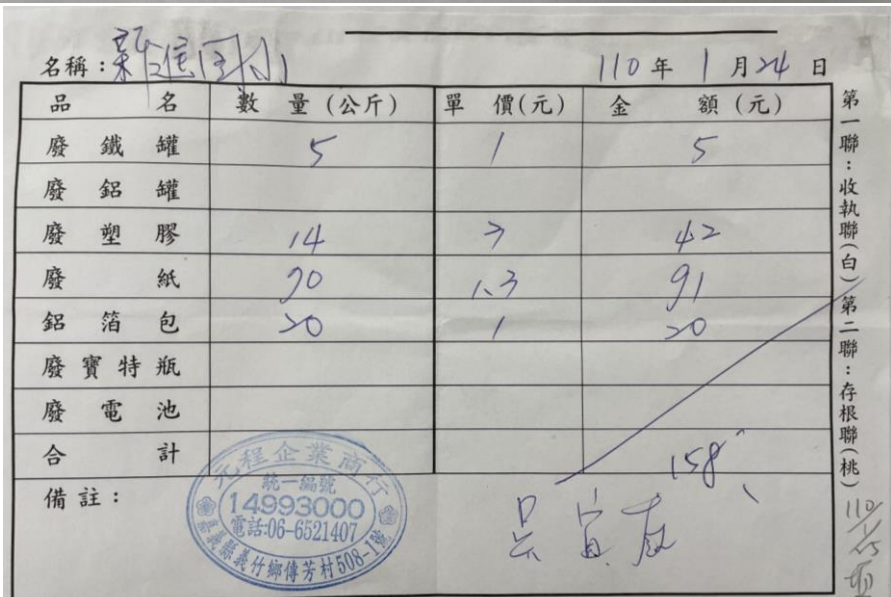 名稱：新進國小 110年1月24日
品名 數量(公斤) 單價(元) 金額(元)
廢鐵罐 5 1 5
廢鋁罐
廢塑膠 14 3 42
廢紙 70 1.3 91
鋁箔包 20 1 20
廢寶特瓶
廢電池
合計 158
備註：
元程企業商行
統一編號
14993000
電話:06-6521407
嘉義縣義竹鄉傳芳村508-1號
第一聯：收執聯(白) 第二聯：存根聯(桃)
110/1/25